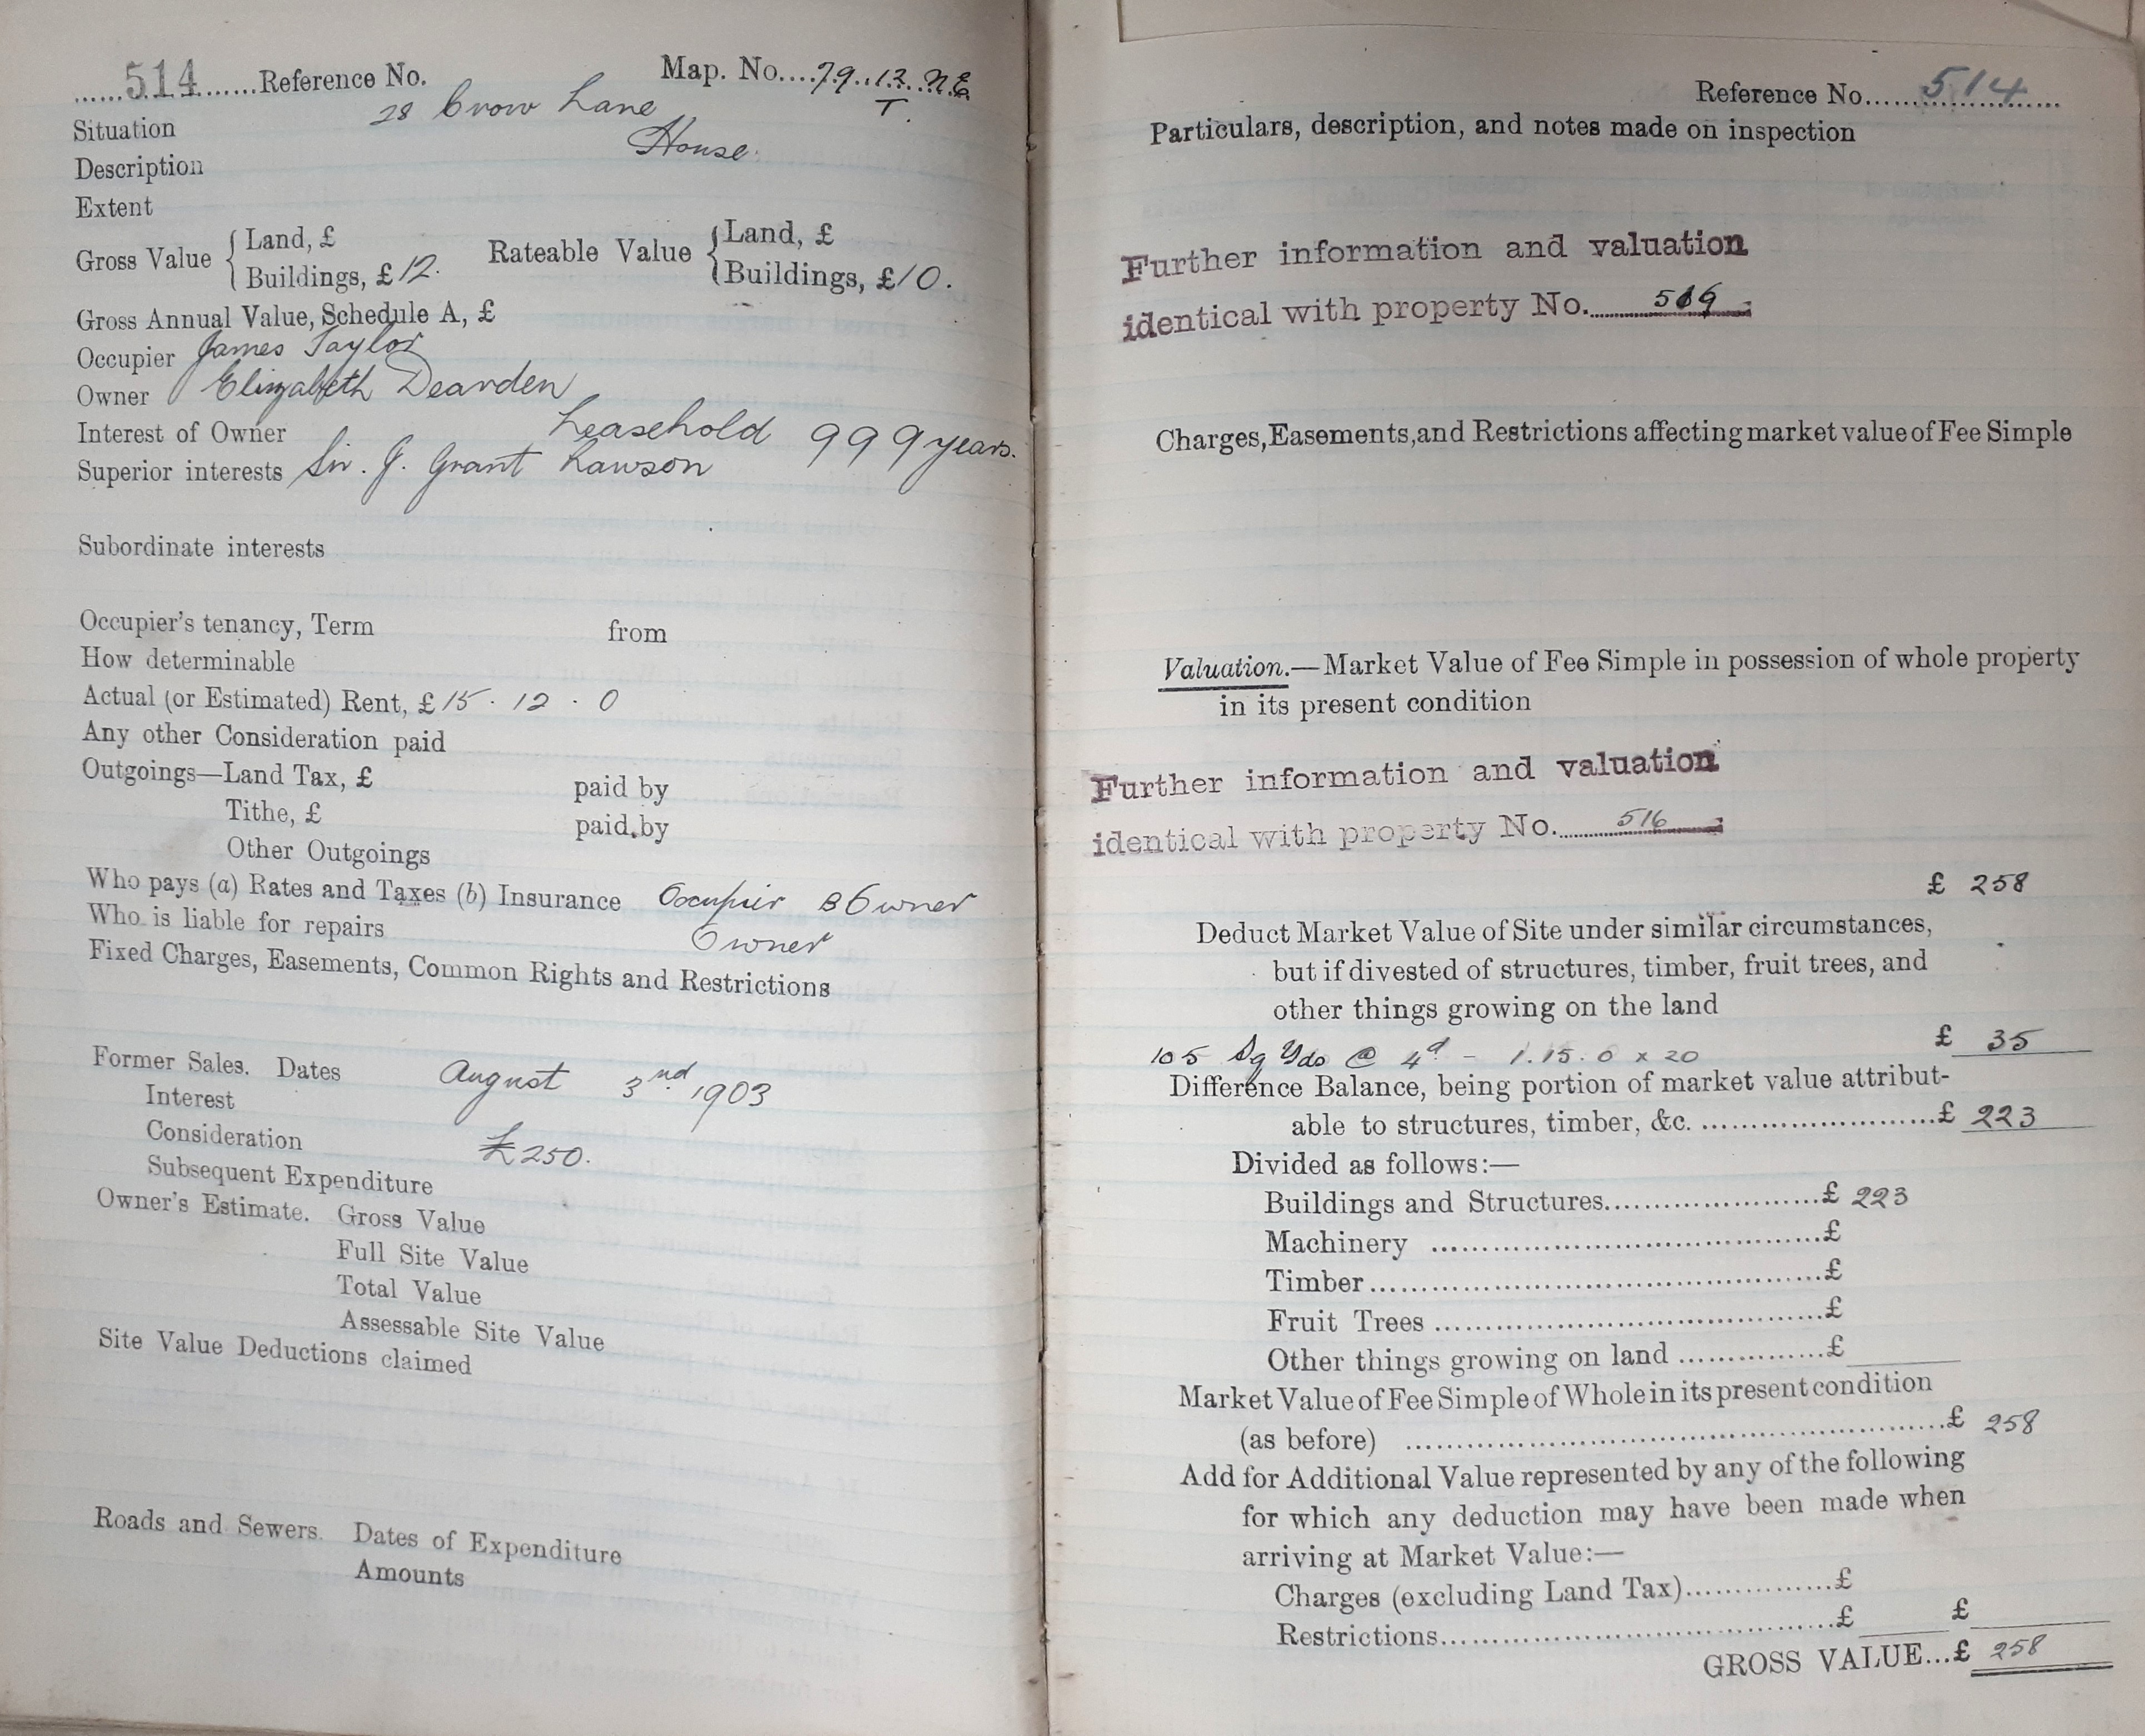 514 Reference No. Map. No. 79.13. N.E
T.
Situation 28 Crow Lane
Description House.
Extent
Gross Value { Land, £ Rateable Value { Land, £
Buildings, £ 12. Buildings, £ 10.
Gross Annual Value, Schedule A, £
Occupier James Taylor
Owner Elizabeth Dearden
Interest of Owner Leasehold 999 years.
Superior interests Sir. J. Grant Lawson
Subordinate interests
Occupier's tenancy, Term from
How determinable
Actual (or Estimated) Rent, £ 15 . 12 . 0
Any other Consideration paid
Outgoings—Land Tax, £ paid by
Tithe, £ paid by
Other Outgoings
Who pays (a) Rates and Taxes (b) Insurance Occupier B Owner
Who is liable for repairs Owner
Fixed Charges, Easements, Common Rights and Restrictions
Former Sales. Dates August 3nd 1903
Interest
Consideration £250.
Subsequent Expenditure
Owner's Estimate. Gross Value
Full Site Value
Total Value
Assessable Site Value
Site Value Deductions claimed
Roads and Sewers. Dates of Expenditure
Amounts
Reference No. 514
Particulars, description, and notes made on inspection
Further information and valuation
identical with property No.
Charges, Easements, and Restrictions affecting market value of Fee Simple
Valuation.—Market Value of Fee Simple in possession of whole property
in its present condition
Further information and valuation
identical with property No. 516
£ 258
Deduct Market Value of Site under similar circumstances,
but if divested of structures, timber, fruit trees, and
other things growing on the land
105 Sq Yds @ 4d - 1.15.0 x 20 £ 35
Difference Balance, being portion of market value attribut-
able to structures, timber, &c. £ 223
Divided as follows:—
Buildings and Structures £ 223
Machinery £
Timber £
Fruit Trees £
Other things growing on land £
Market Value of Fee Simple of Whole in its present condition
(as before) £ 258
Add for Additional Value represented by any of the following
for which any deduction may have been made when
arriving at Market Value:—
Charges (excluding Land Tax) £
Restrictions £ £
GROSS VALUE...£ 258